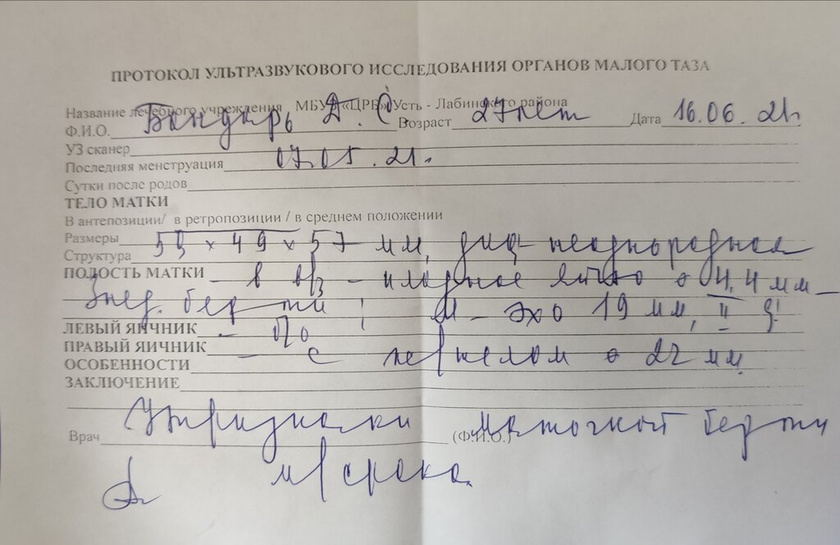 ПРОТОКОЛ УЛЬТРАЗВУКОВОГО ИССЛЕДОВАНИЯ ОРГАНОВ МАЛОГО ТАЗА
Название лечебного учреждения МБУЗ «ЦРБ» Усть - Лабинского района
Ф.И.О. Бондарь Д. С. Возраст 27 лет Дата 16.06.21г
УЗ сканер
Последняя менструация 07.05.21г.
Сутки после родов
ТЕЛО МАТКИ
В антепозиции/ в ретропозиции / в среднем положении
Размеры 53 х 49 х 57 мм,
Структура неоднородная
ПОЛОСТЬ МАТКИ - в в/3 - плодное яйцо 4,4 мм -
3 нед. бер-ти; М-эхо 19 мм, II ф.
ЛЕВЫЙ ЯИЧНИК -
ПРАВЫЙ ЯИЧНИК - с 22 мм
ОСОБЕННОСТИ
ЗАКЛЮЧЕНИЕ
Уз признаки маточной бер-ти
Врач (Ф.И.О.)
м/срока